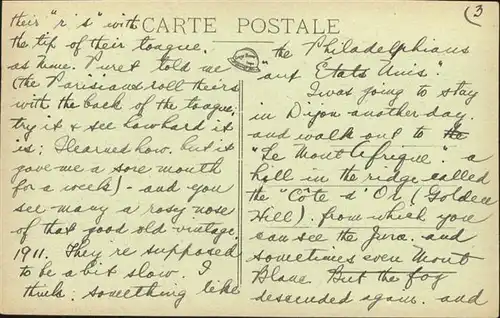 CARTE POSTALE
3
their "r's" with
the tip of their tongue.
as Mme. Puret told me
(the Parisians roll theirs
with the back of the tongue,
try it & see how hard it
is; I learned how, but it
gave me a sore mouth
for a week) - and you
see many a rosy nose
of that good old vintage
1911. They're supposed
to be a bit slow. I
think: something like
the Philadelphians
"aux Etats Unis".
I was going to stay
in Dijon another day.
and walk out to the
"Le Mont Afrique" a
hill in the ridge called
the "Côte d'Or (Golden
Hill). from which you
can see the Jura. and
sometimes even Mont
Blanc. But the fog
descended again. and